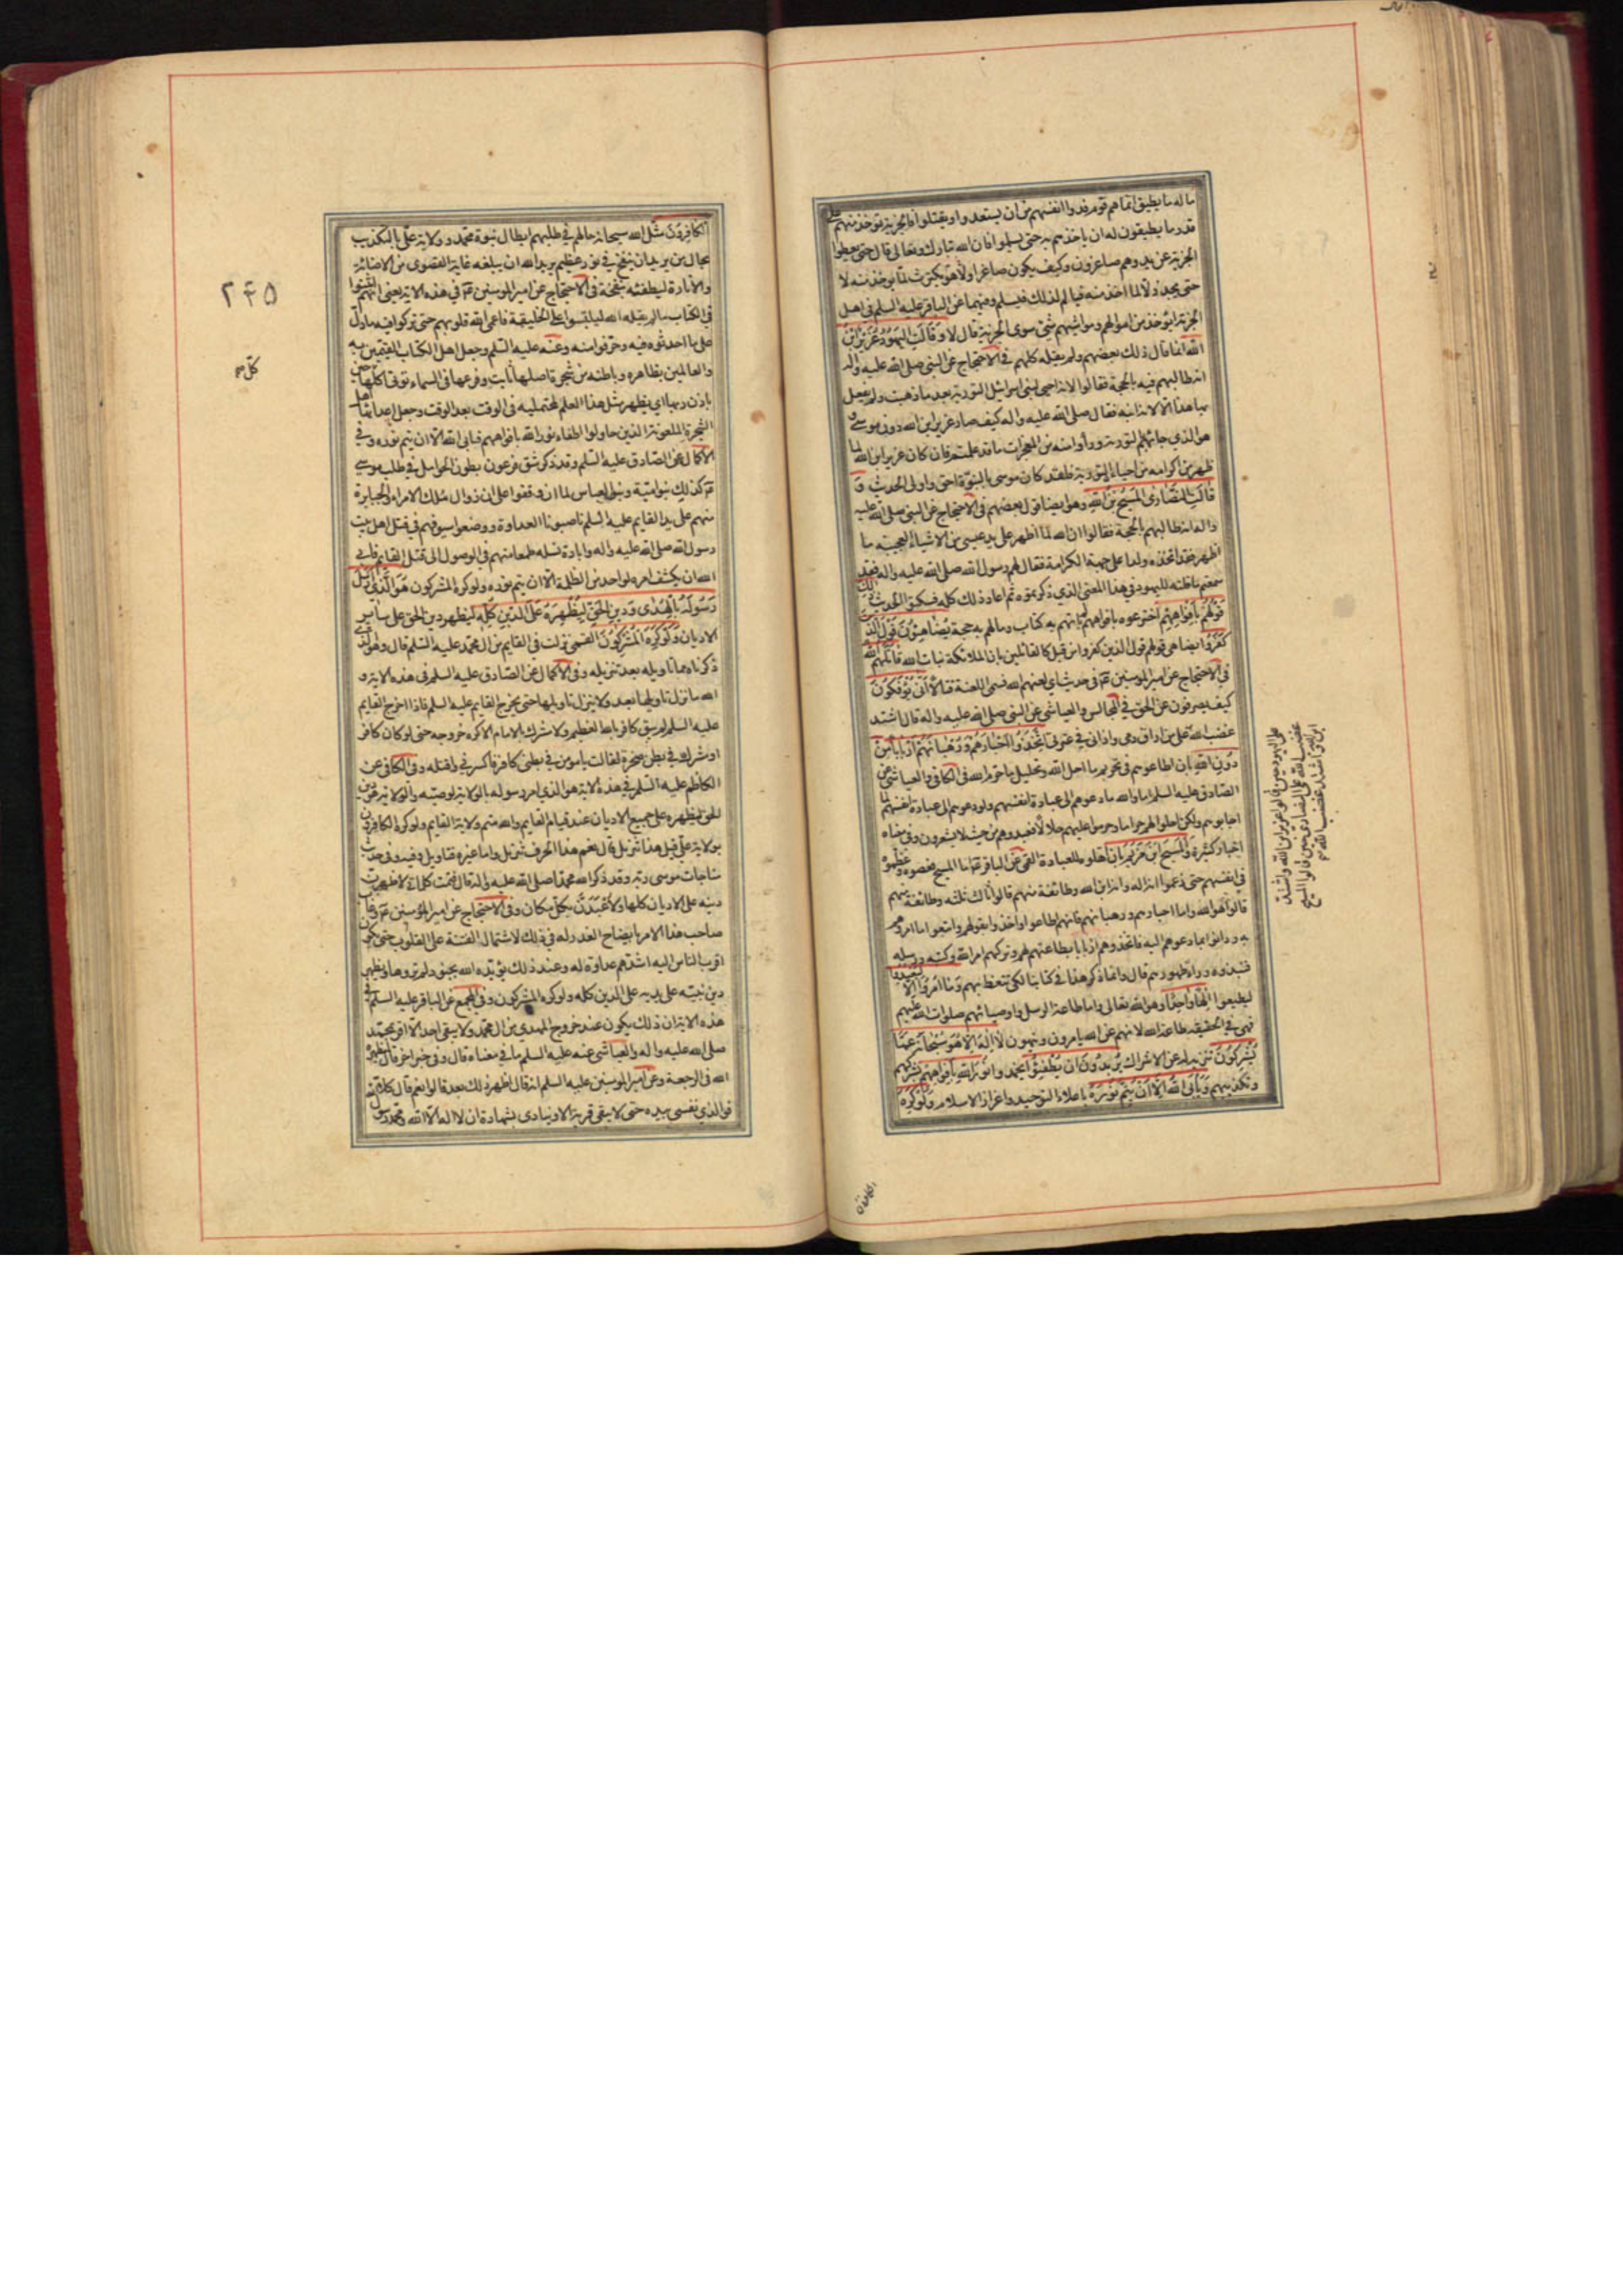 ما له ما يطيق انما هم قوم فدوا انفسهم من ان يستعبدوا او يقتلوا فالجزية تؤخذ منهم على
قدر ما يطيقون له ان ياخذهم به حتى يسلموا فان الله تبارك وتعالى قال حتى يعطوا
الجزية عن يد وهم صاغرون وكيف يكون صاغرا ولا هو يكترث لما يؤخذ منه لا
حتى يجد ذلا لما اخذ منه فيالم لذلك فيسلم وفيهما عن الباقر عليه السلم في اهل
الجزية ايؤخذ من اموالهم ومواشيهم شئ سوى الجزية قال لا وَقَالَتِ الْيَهُودُ عُزَيْرٌ ابْنُ
اللهِ انما قال ذلك بعضهم ولم يقله كلهم في الاحتجاج عن النبي صلى الله عليه واله
انه طالبهم فيه بالحجة فقالوا لانه احيى لبني اسرائيل التورية بعد ما ذهبت ولم يفعل
بها هذا الا لانه ابنه فقال صلى الله عليه واله كيف صار عزير ابن الله دون موسى و
هو الذي جاءهم بالتورية وراوا منه من المعجزات ما قد علمتم فان كان عزير ابن الله لما
ظهر من اكرامه من احياء التورية فلقد كان موسى بالبنوة احق واولى الحديث وَ
قَالَتِ النَّصَارَى الْمَسِيحُ ابْنُ اللهِ وهو ايضا قول بعضهم في الاحتجاج عن النبي صلى الله عليه
واله انه طالبهم بالحجة فقالوا ان الله لما اظهر على يد عيسى من الاشياء العجيبة ما
اظهر فقد اتخذه ولدا على جهة الكرامة فقال لهم رسول الله صلى الله عليه واله فقد
سمعتم ما قلته لليهود في هذا المعنى الذي ذكرتموه ثم اعاد ذلك كله فسكتوا الحديث ذلك
قَوْلُهُمْ بِأَفْوَاهِهِمْ اخترعوه بافواههم لم ياتهم به كتاب وما لهم به حجة يُضَاهِئُونَ قَوْلَ الَّذِينَ
كَفَرُوا يضاهي قولهم قول الذين كفروا من قبل كالقائلين بان الملائكة بنات الله قَاتَلَهُمُ اللهُ
في الاحتجاج عن امير المومنين ع في حديث اي لعنهم الله فسمى اللعنة قتالا أَنَّى يُؤْفَكُونَ
كيف يصرفون عن الحق في المجالس والعياشي عن النبي صلى الله عليه واله قال اشتد
غضب الله على من اراق دمي واذاني في عترتي اتَّخَذُوا أَحْبَارَهُمْ وَرُهْبَانَهُمْ أَرْبَابًا مِنْ
دُونِ اللهِ بان اطاعوهم في تحريم ما احل الله وتحليل ما حرم الله في الكافي والعياشي عن
الصادق عليه السلم اما والله ما دعوهم الى عبادة انفسهم ولو دعوهم الى عبادة انفسهم لما
اجابوهم ولكن احلوا لهم حراما وحرموا عليهم حلالا فعبدوهم من حيث لا يشعرون وفي معناه
اخبار كثيرة وَالْمَسِيحَ ابْنَ مَرْيَمَ بان اهلوه للعبادة القمي عن الباقر ع اما المسيح فعصوه وعظموه
في انفسهم حتى زعموا انه اله وانه ابن الله وطائفة منهم قالوا ثالث ثلثة وطائفة منهم
قالوا هو الله واما احبارهم ورهبانهم فانهم اطاعوا واخذوا بقولهم واتبعوا ما امروهم
به ودانوا بما دعوهم اليه فاتخذوهم اربابا بطاعتهم لهم وتركهم امر الله وكتبه ورسله
فنبذوه وراء ظهورهم قال وانما ذكر هذا في كتابنا لكي نتعظ بهم وَمَا أُمِرُوا إِلَّا لِيَعْبُدُوا
ليطيعوا إِلَهًا وَاحِدًا وهو الله تعالى واما طاعة الرسل واوصيائهم صلوات الله عليهم
فهي في الحقيقة طاعة الله لانهم عن الله يامرون وينهون لَا إِلَهَ إِلَّا هُوَ سُبْحَانَهُ عَمَّا
يُشْرِكُونَ تنزيه له عن الاشراك يُرِيدُونَ أَنْ يُطْفِئُوا يخمدوا نُورَ اللهِ بِأَفْوَاهِهِمْ بشركهم
وتكذيبهم وَيَأْبَى اللهُ إِلَّا أَنْ يُتِمَّ نُورَهُ باعلاء التوحيد واعزاز الاسلام وَلَوْ كَرِهَ
على اليهود حين قالوا عزير ابن الله واشتد
غضب الله على النصارى حين قالوا المسيح
ابن الله واشتد غضب الله
الكافرون
الْكَافِرُونَ مثل الله سبحانه حالهم في طلبهم ابطال نبوة محمد وولاية علي بالتكذيب
بحال من يريد ان ينفخ في نور عظيم يريد الله ان يبلغه غاية القصوى من الاضائة
والانارة ليطفئه بنفخة في الاحتجاج عن امير المومنين ع في هذه الاية يعني انهم اثبتوا
في الكتاب ما لم يقله الله ليلبسوا على الخليقة فاعمى الله قلوبهم حتى تركوا فيه ما دل
على ما احدثوه فيه وحرفوا منه وعنه عليه السلم وجعل اهل الكتاب القيمين به
والعالمين بظاهره وباطنه من شجرة اصلها ثابت وفرعها في السماء تؤتي اكلها كل حين
باذن ربها اي يظهر مثل هذا العلم لمحتمليه في الوقت بعد الوقت وجعل اعدائها اهل
الشجرة الملعونة الذين حاولوا اطفاء نور الله بافواههم فابى الله الا ان يتم نوره وفي
الاكمال عن الصادق عليه السلم وقد ذكر شق فرعون بطون الحوامل في طلب موسى
ع كذلك بنو امية وبنو العباس لما ان وقفوا على ان زوال ملك الامراء والجبابرة
منهم على يد القايم عليه السلم ناصبونا العداوة ووضعوا سيوفهم في قتل اهل بيت
رسول الله صلى الله عليه واله وابادة نسله طمعا منهم في الوصول الى قتل القايم فابى
الله ان يكشف امره لواحد من الظلمة الا ان يتم نوره ولو كره المشركون هُوَ الَّذِي أَرْسَلَ
رَسُولَهُ بِالْهُدَى وَدِينِ الْحَقِّ لِيُظْهِرَهُ عَلَى الدِّينِ كُلِّهِ ليظهر دين الحق على ساير
الاديان وَلَوْ كَرِهَ الْمُشْرِكُونَ القمي نزلت في القايم من ال محمد عليه السلم قال وهو الذي
ذكرناه مما تاويله بعد تنزيله وفي الاكمال عن الصادق عليه السلم في هذه الاية و
الله ما نزل تاويلها بعد ولا ينزل تاويلها حتى يخرج القايم عليه السلم فاذا اخرج القايم
عليه السلم لم يبق كافر بالله العظيم ولا مشرك بالامام الا كره خروجه حتى لو كان كافر
او مشرك في بطن صخرة لقالت يا مومن في بطني كافر فاكسرني واقتله وفي الكافي عن
الكاظم عليه السلم في هذه الاية هو الذي امر رسوله بالولاية لوصيه والولاية هي دين
الحق ليظهره على جميع الاديان عند قيام القايم والله متم ولاية القايم ولو كره الكافرون
بولاية علي قيل هذا تنزيل قال نعم هذا الحرف تنزيل واما غيره فتاويل وفيه في حديث
مناجات موسى ربه وقد ذكر الله محمدا صلى الله عليه واله قال فتمت كلماتي لاظهرن
دينه على الاديان كلها ولاعبدن بكل مكان وفي الاحتجاج عن امير المؤمنين ع وغاب
صاحب هذا الامر بايضاح العذر له في ذلك لاشتمال الفتنة على القلوب حتى يكون
اقرب الناس اليه اشدهم عداوة له وعند ذلك يؤيده الله بجنود لم تروها ويظهر
دين نبيه على يديه على الدين كله ولو كره المشركون وفي المجمع عن الباقر عليه السلم في
هذه الاية ان ذلك يكون عند خروج المهدي من ال محمد ولا يبقى احد الا اقر بمحمد
صلى الله عليه واله والعياشي عنه عليه السلم ما في معناه قال وفي خبر اخر قال ليظهره
الله في الرجعة وعن امير المومنين عليه السلم انه قال اظهر ذلك بعد قالوا نعم قال كلا
فوالذي نفسي بيده حتى لا يبقى قرية الا وينادى بشهادة ان لا اله الا الله ومحمد رسول
۲۴۵